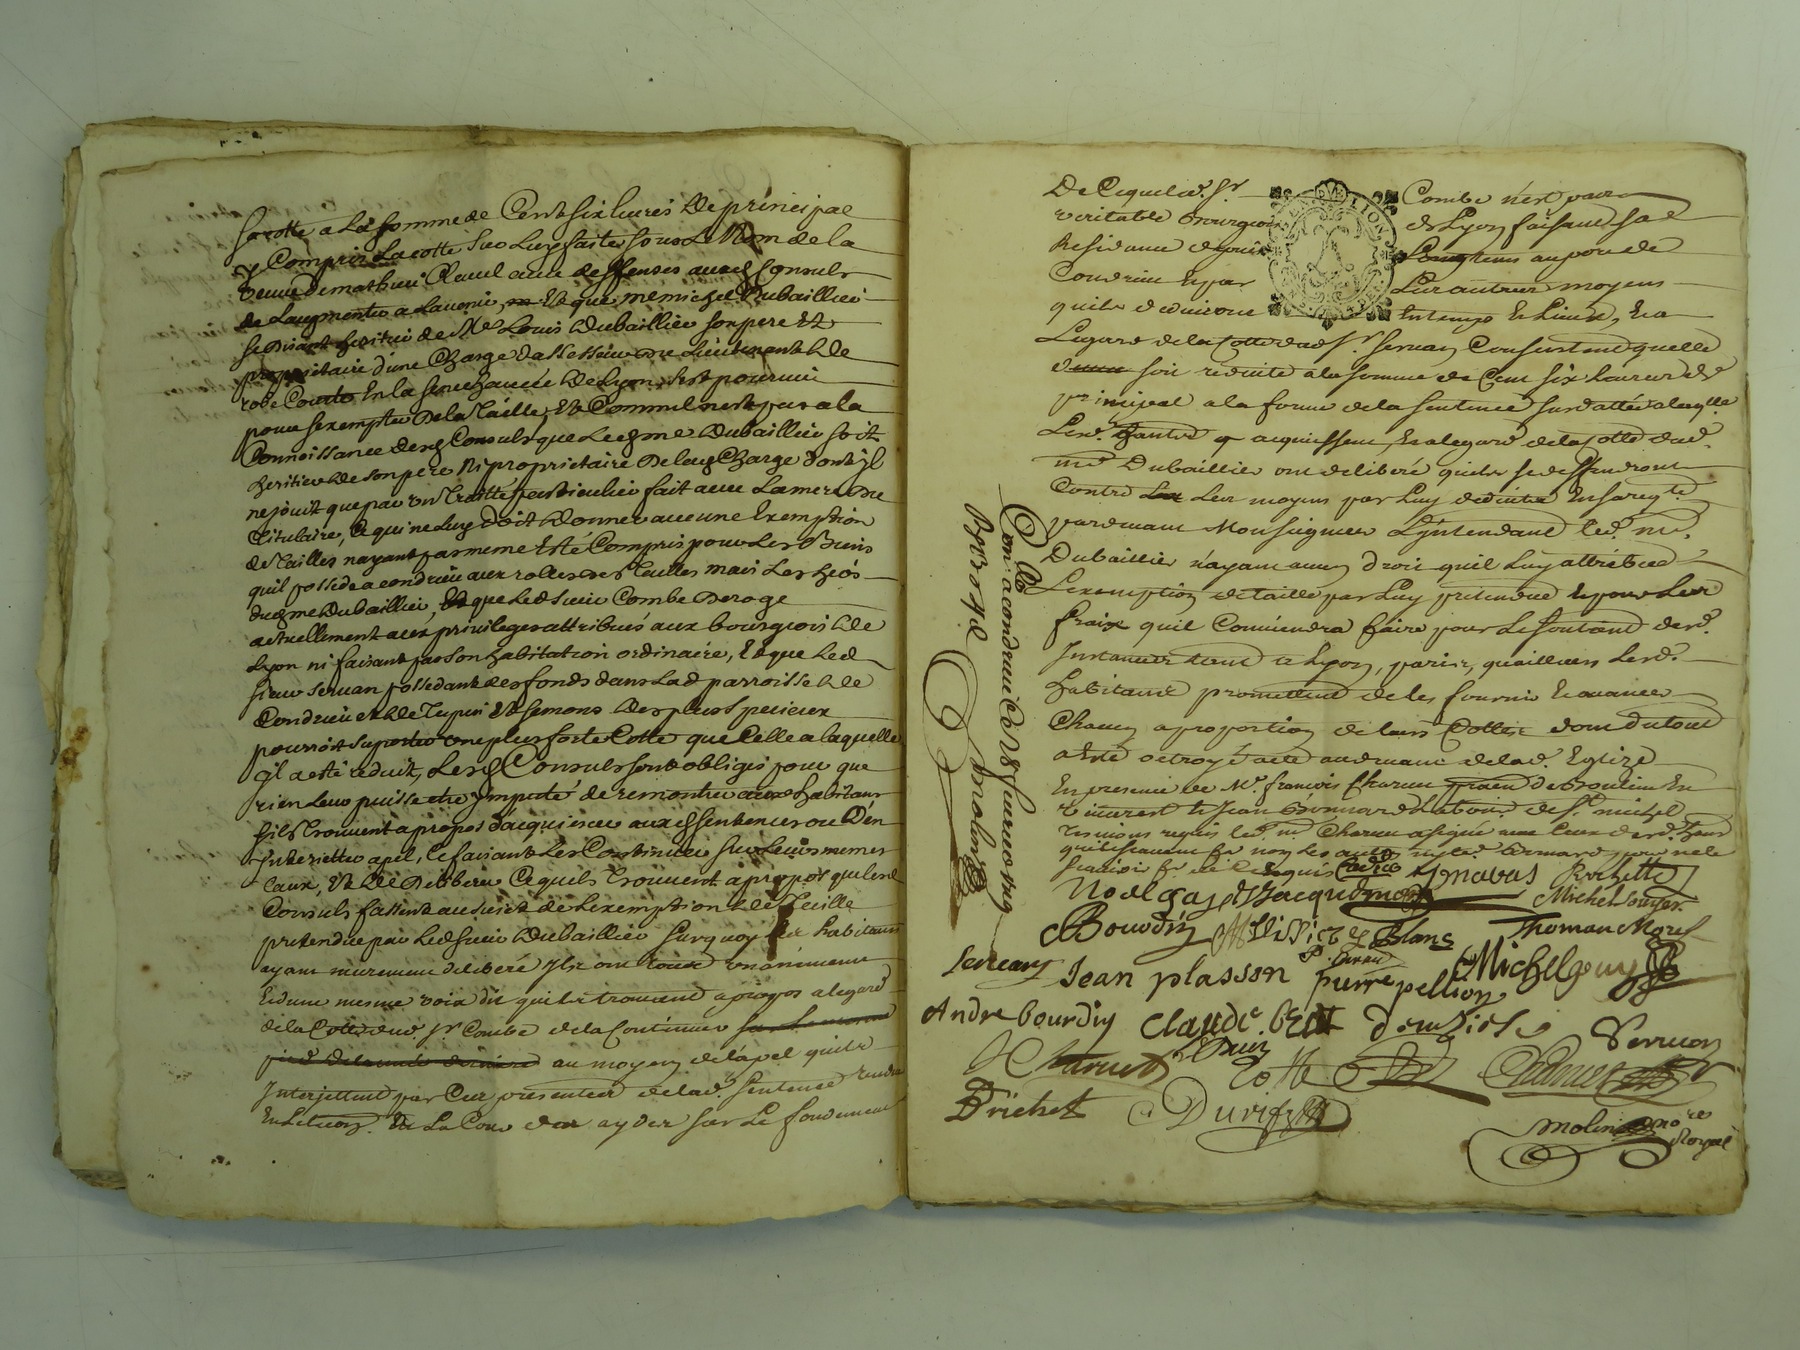 sa cotte a la somme de Cent six livres de principal
y Compris La cotte sur Luy faite sous Le Nom de la
veuve de mathieu Ravel avec deffenses auxd Consuls
de Laugmenter a Lavenir, Et que me michel Dubaillier
se disant heritier de Me Louis Dubaillier son pere Et
propretaire d'une Charge dassesseur Lieutenant de
robe Courte En la senechaucée de Lyon sest pourvu
pour sexempter de la Taille, Et Comme il nest pas a la
Connoissance desd Consuls que Led me Dubaillier soit
heritier de son pere Ni proprietaire de lad Charge dont jl
ne jouit que par un Traitté particulier fait avec La mere du
titulaire, Ce qui ne Luy doit donner aucune Exemption
de Tailles nayant pas meme Esté Compris pour Les Biens
quil possede a condrieu aux rolles des Tailles mais Les hoirs
dud me Dubaillier, Et que Led sieur Combe deroge
actuellement aux privileges attribués aux bourgeois de
Lyon ni faisant pas son habitation ordinaire, Et que Led
sieur servan possedant des fonds dans Lad parroisse de
Condrieu et de Tupin Et semons des plus specieux
pourroit suporter une plus forte Cotte que Celle a laquelle
il a esté reduit, Lesd Consuls sont obligés pour que
rien Leur puisse etre jmputé de remontrer aux habitans
sils trouvent a propos dacquiescer auxd sentences ou d'en
Interietter apel, Ce faisant Les Continuer sur Leurs memes
taux, Et de Deliberer Ce quils trouvent a propos que lesd
Consuls fassent au sujet de Lexemption de Taille
pretendue par Led sieur Dubaillier surquoy Les habitans
ayant meurement deliberé jls ont tous unanimement
Et dune mesme voix dit quils trouvent a propos a legard
de la Cotte dud. Sr. Combe de la Continuer sur Le mesme
pied de lannée derniere au moyen de lapel quils
Interjettent par Ces presentes de lad. sentence rendue
En Lelection Et La Cour des aydes sur Le fondement
De Ce que led. Sr. Combe n'est pas
veritable Bourgeois de Lyon faisant sa
Residance depuis Longtems au Lieu de
Condrieu Et par Les autres moyens
quils deduiront En temps Et Lieux, Et a
Legard de la Cotte dud Sr. Servan Consentent quelle
soit reduite a la somme de Cent six Livres de
principal a la forme de la sentence surdattée a laquelle
Lesd. habitans acquiessent, Et a legard de la Cotte dud.
me Dubaillier ont deliberé quils se deffendront
Contre Les moyens par Luy deduits En sa reqte
pardevant Monseigneur L'jntendant led. me.
Dubaillier n'ayant aucun droit quil Luy attribue
L'exemption de taille par Luy pretendue Et pour Les
fraix quil Conviendra faire pour Le soutient desd.
Instances tant a Lyon, paris, quailleurs Lesd.
habitants promettent de les fournir Et avancer
Chacun a proportion de leurs Cottes dont du tout
a Esté octroyé acte audevant de lad. Eglize
En presence de Me. françois Charin
vivarest Et Jean Bonnard Labour. de St. michel
Tesmoins requis led. me Charin a signé avec Ceux desd. habitans
Con: a condrieu
Royal
Molin
Noel gay
Jacquemon
navas
Rochette
Michel
Bourdin
Blanc
Thomas Morel
Servan
Jean plasson
pierre pellion
Michel guy
Andre bourdin
Claude
Vernon
Charvet
Cotte
Drichet
Durif
molin nore
Royal